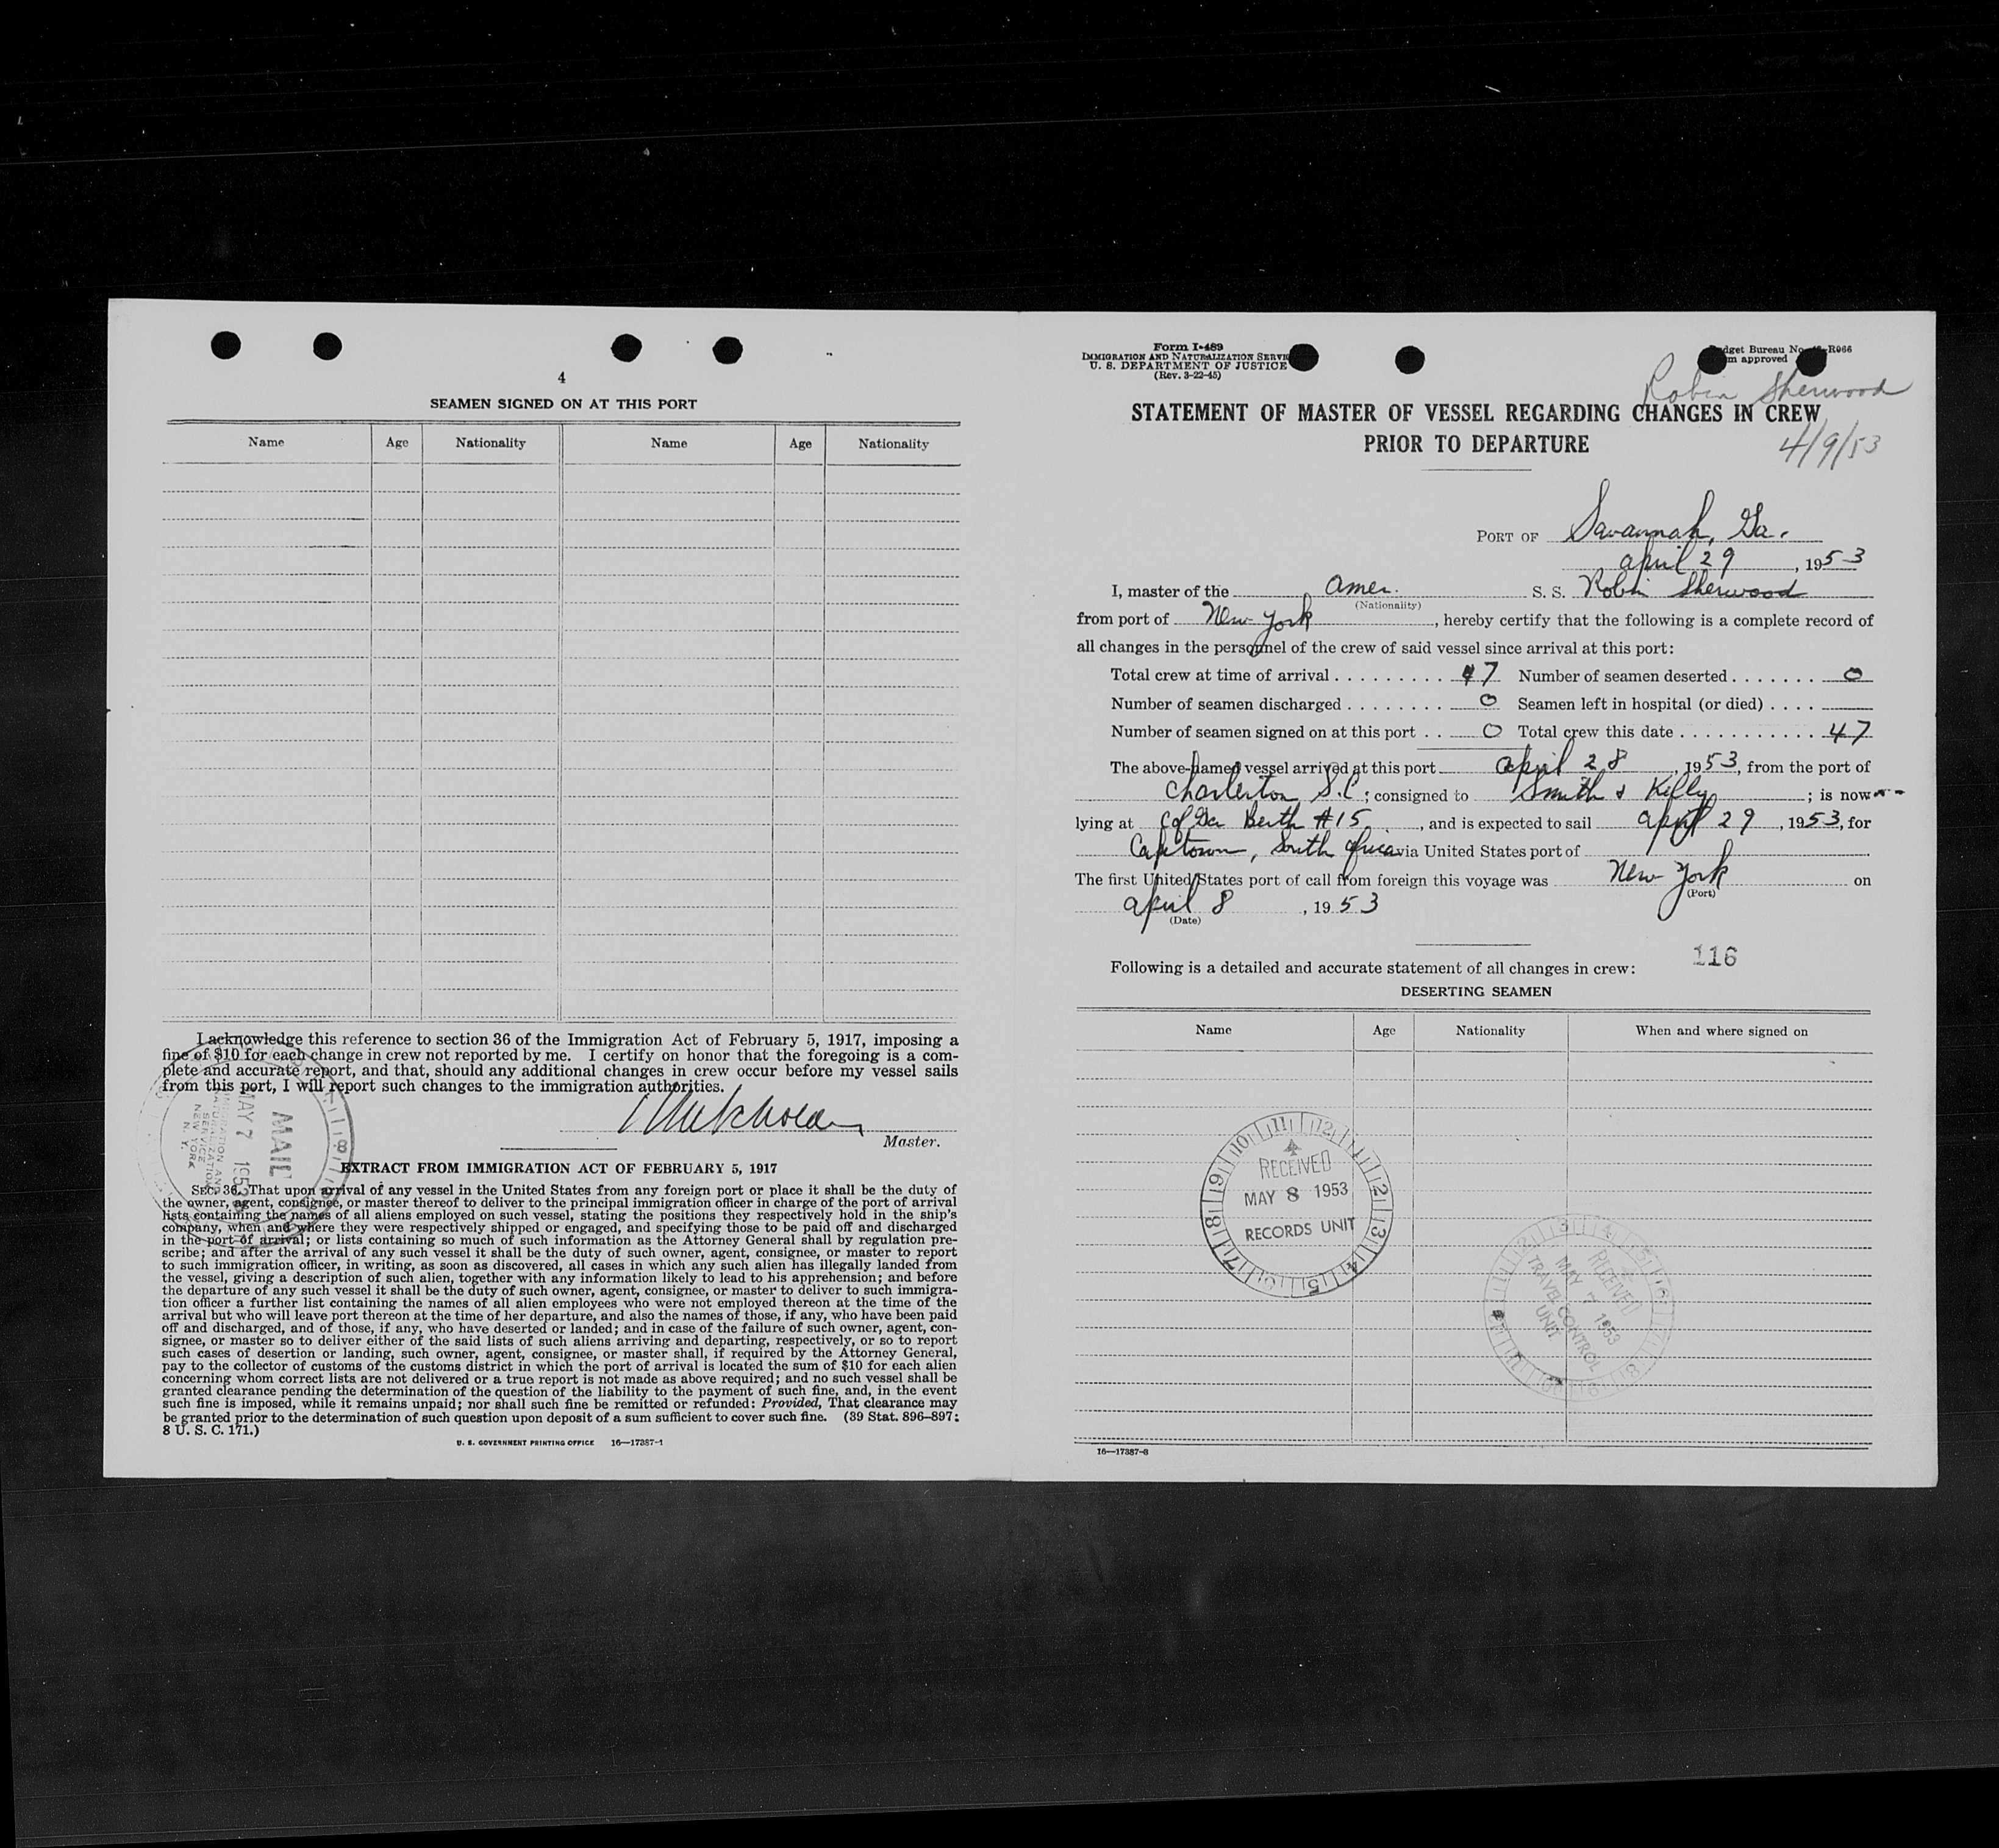 4
SEAMEN SIGNED ON AT THIS PORT
Name Age Nationality Name Age Nationality
I acknowledge this reference to section 36 of the Immigration Act of February 5, 1917, imposing a
fine of $10 for each change in crew not reported by me. I certify on honor that the foregoing is a com-
plete and accurate report, and that, should any additional changes in crew occur before my vessel sails
from this port, I will report such changes to the immigration authorities.
Master.
MAIL
MAY 7 1953
IMMIGRATION AND
NATURALIZATION
SERVICE
NEW YORK
N. Y.
EXTRACT FROM IMMIGRATION ACT OF FEBRUARY 5, 1917
SEC. 36. That upon arrival of any vessel in the United States from any foreign port or place it shall be the duty of
the owner, agent, consignee, or master thereof to deliver to the principal immigration officer in charge of the port of arrival
lists containing the names of all aliens employed on such vessel, stating the positions they respectively hold in the ship's
company, when and where they were respectively shipped or engaged, and specifying those to be paid off and discharged
in the port of arrival; or lists containing so much of such information as the Attorney General shall by regulation pre-
scribe; and after the arrival of any such vessel it shall be the duty of such owner, agent, consignee, or master to report
to such immigration officer, in writing, as soon as discovered, all cases in which any such alien has illegally landed from
the vessel, giving a description of such alien, together with any information likely to lead to his apprehension; and before
the departure of any such vessel it shall be the duty of such owner, agent, consignee, or master to deliver to such immigra-
tion officer a further list containing the names of all alien employees who were not employed thereon at the time of the
arrival but who will leave port thereon at the time of her departure, and also the names of those, if any, who have been paid
off and discharged, and of those, if any, who have deserted or landed; and in case of the failure of such owner, agent, con-
signee, or master so to deliver either of the said lists of such aliens arriving and departing, respectively, or so to report
such cases of desertion or landing, such owner, agent, consignee, or master shall, if required by the Attorney General,
pay to the collector of customs of the customs district in which the port of arrival is located the sum of $10 for each alien
concerning whom correct lists are not delivered or a true report is not made as above required; and no such vessel shall be
granted clearance pending the determination of the question of the liability to the payment of such fine, and, in the event
such fine is imposed, while it remains unpaid; nor shall such fine be remitted or refunded: Provided, That clearance may
be granted prior to the determination of such question upon deposit of a sum sufficient to cover such fine. (39 Stat. 896–897;
8 U. S. C. 171.)
U. S. GOVERNMENT PRINTING OFFICE 16—17387-1
Form I-489
IMMIGRATION AND NATURALIZATION SERVI
U. S. DEPARTMENT OF JUSTICE
(Rev. 3-22-45)
dget Bureau No. R066
m approved
Robin Sherwood
STATEMENT OF MASTER OF VESSEL REGARDING CHANGES IN CREW
PRIOR TO DEPARTURE
4/9/53
PORT OF Savannah, Ga.
April 29, 1953
I, master of the Amer. S. S. Robin Sherwood
(Nationality)
from port of New York, hereby certify that the following is a complete record of
all changes in the personnel of the crew of said vessel since arrival at this port:
Total crew at time of arrival . . . . . . . . . 47 Number of seamen deserted . . . . . . . 0
Number of seamen discharged . . . . . . . . 0 Seamen left in hospital (or died) . . . .
Number of seamen signed on at this port . . 0 Total crew this date . . . . . . . . . . . . 47
The above-named vessel arrived at this port April 28, 1953, from the port of
Charleston S.C; consigned to Smith & Kelly; is now
lying at C of Ga Berth #15, and is expected to sail April 29, 1953, for
Capetown, South Africa via United States port of
The first United States port of call from foreign this voyage was New York on
(Port)
April 8, 1953
(Date)
116
Following is a detailed and accurate statement of all changes in crew:
DESERTING SEAMEN
Name Age Nationality When and where signed on
RECEIVED
MAY 8 1953
RECORDS UNIT
RECEIVED
MAY 7 1953
TRAVEL CONTROL
UNIT
16—17387-8